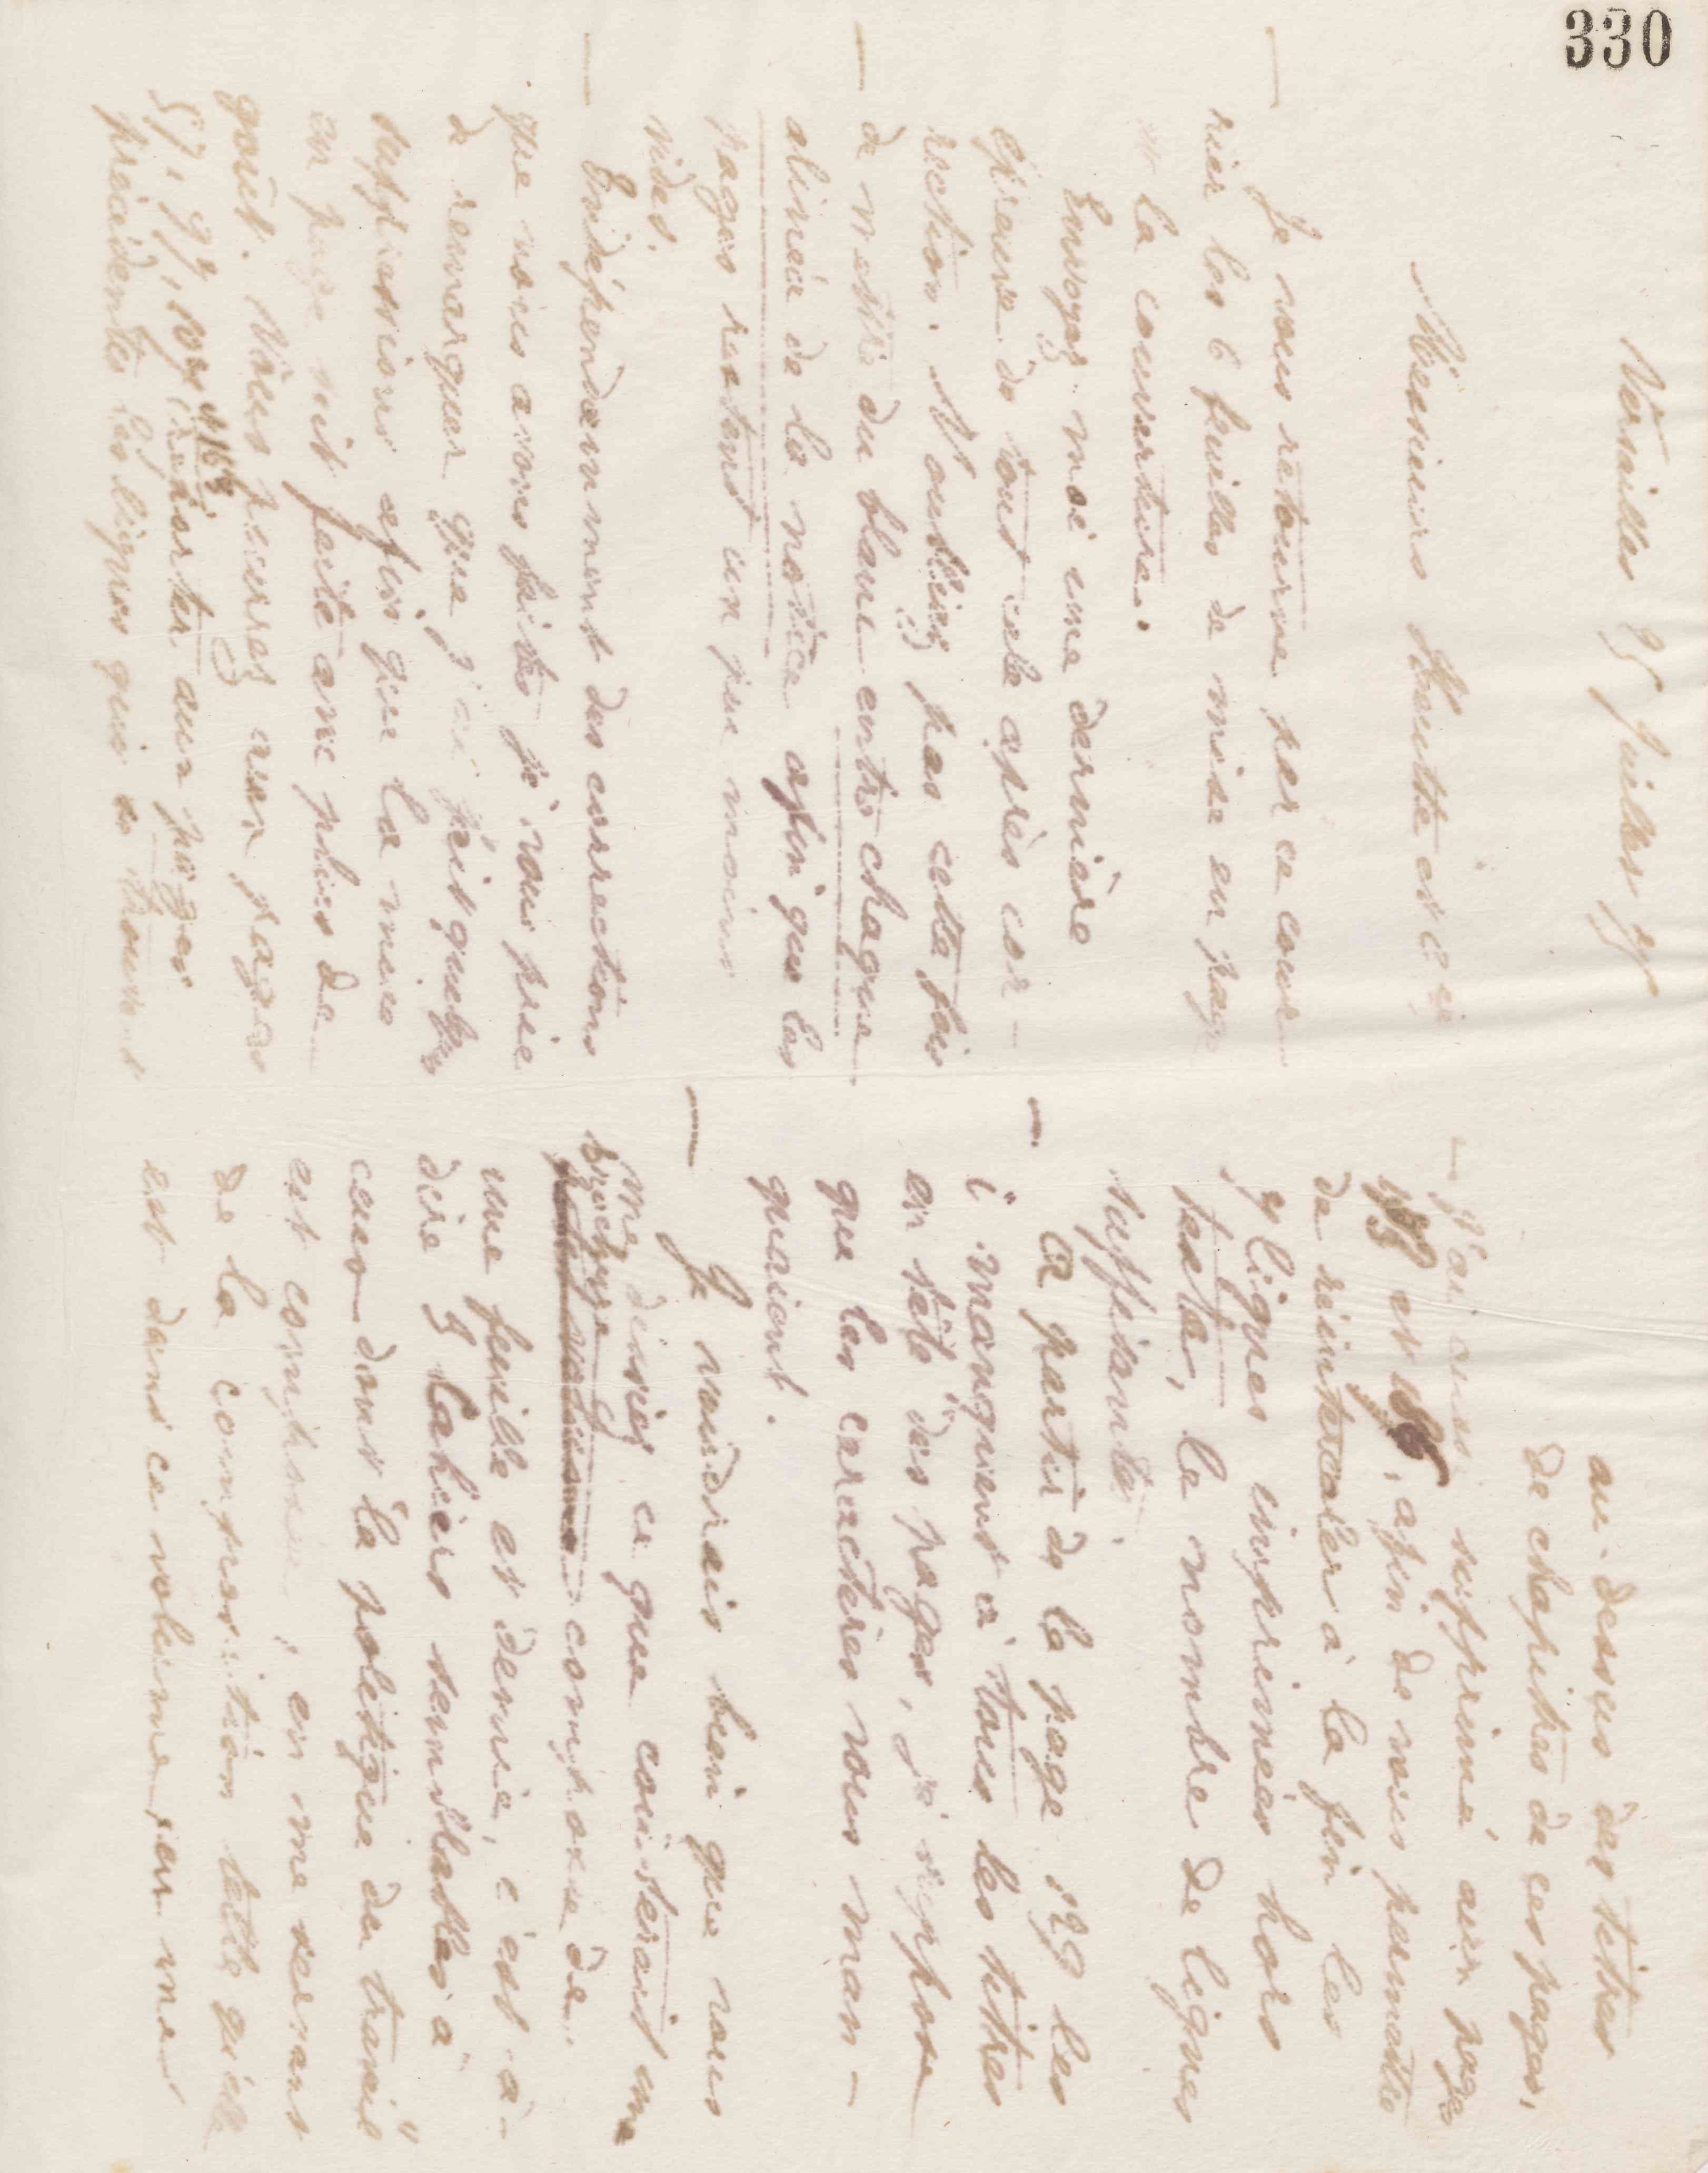 330
Versailles 25 Juillet 89
Messieurs Heutte et Cie
Je vous retourne par ce cour-
rier les 6 feuilles de mise en page
et la couverture.
Envoyez moi une dernière
épreuve de tout cela après cor-
rection. N'oubliez pas cette fois
de mettre du blanc entre chaque
alinéa de la notice afin que les
pages restent un peu moins
vides.
— Indépendamment des corrections
que nous avons faites je vous prie
de remarquer que j'ai fait quelques
suppressions afin que la mise
en page soit faite avec plus de
goût. Vous pourrez aux pages
57, 92, 107 et 165 reporter aux pages
précédentes les lignes qui se trouvent
au-dessus des titres
de chapitres de ces pages.
— J'ai aussi supprimé aux pages
et , afin de vous permettre
de réintercaler à la fin les
lignes imprimées hors
texte, le nombre de lignes
suffisante.
— A partir de la page 129 les
i manquent à tous les titres
en tête des pages, je suppose
que les caractères vous man-
quaient.
— Je voudrais bien que vous
me disiez ce que coûterait une
brochure composée de
une feuille et demie, c'est-à-
dire 3 cahiers semblables à
ceux dont la politique du travail
est composée, en me servant
de la composition telle qu'elle
est dans ce volume sur une